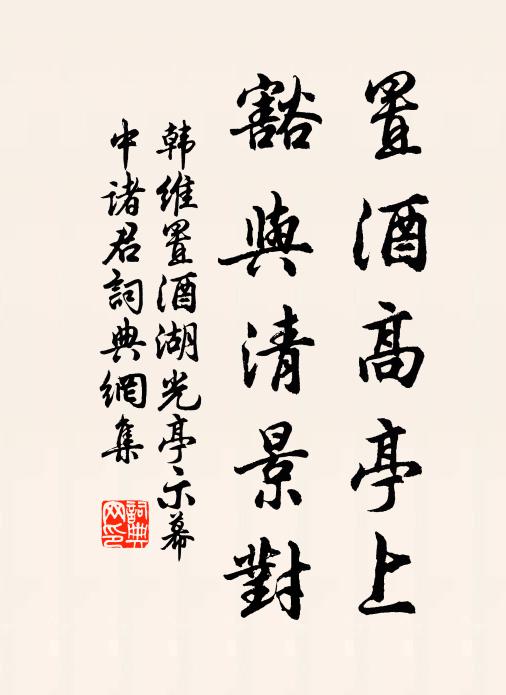 置酒高亭上
豁與清景對
韩維置酒湖光亭示幕
中诸君詞典網集
詞典
网印